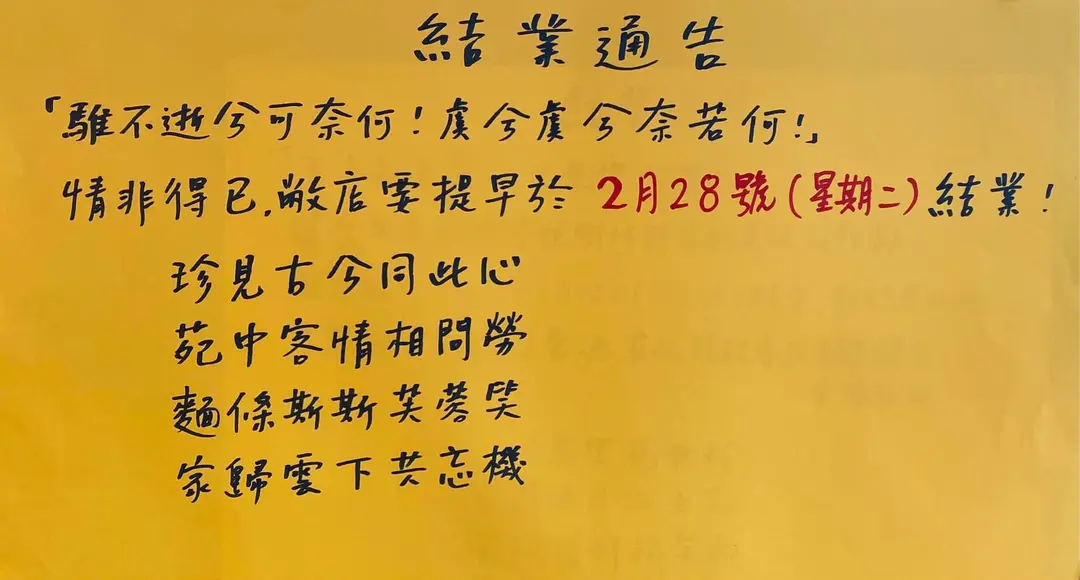 結業通告
「騅不逝兮可奈何!虞兮虞兮奈若何!」
情非得已,敝店要提早於 2月28號(星期二)結業!
珍見古今同此心
苑中客情相問勞
麵條斯斯芙蓉笑
家歸雲下共忘機